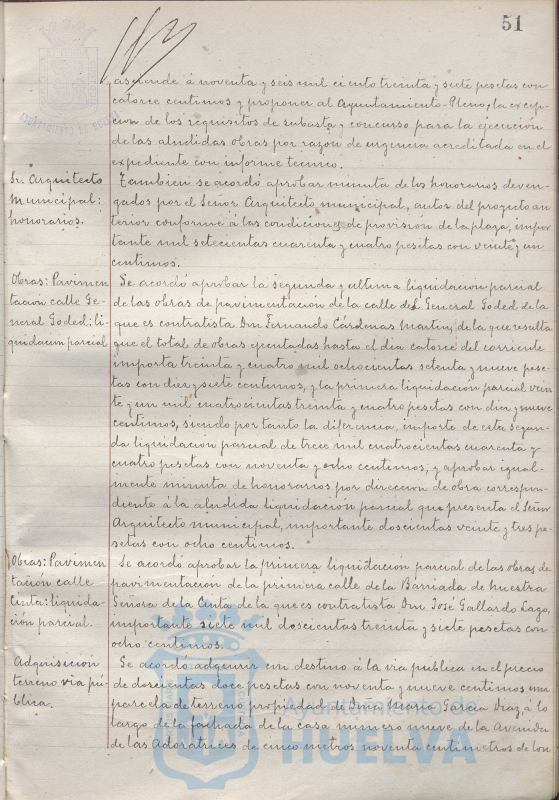 51
asciende á noventa y seis mil ciento treinta y siete pesetas con
catorce centimos y proponer al Ayuntamiento-Pleno, la excep-
cion de los requisitos de subasta y concurso para la ejecución
de las aludidas obras por razon de urgencia acreditada en el
expediente con informe tecnico.
Sr. Arquitecto
Municipal:
honorarios.
Tambien se acordó aprobar minuta de los honorarios deven-
gados por el Señor Arquitecto municipal, autor del proyecto an-
terior conforme á las condiciones de provisión de la plaza, impor-
tante mil setecientas cuarenta y cuatro pesetas con veinte y un
centimos.
Obras: Pavimen
tación calle Ge-
neral Goded: li-
quidacion parcial
Se acordó aprobar la segunda y ultima liquidacion parcial
de las obras de pavimentación de la calle del General Goded de la
que es contratista Don Fernando Cárdenas Martin, de la que resulta
que el total de obras ejecutadas hasta el dia catorce del corriente
importa treinta y cuatro mil ochocientas setenta y nueve pese-
tas con diez y siete centimos, y la primera liquidación parcial vein-
te y un mil cuatrocientas treinta y cuatro pesetas con diez y nueve
centimos, siendo por tanto la diferencia, importe de esta segun-
da liquidacion parcial de trece mil cuatrocientas cuarenta y
cuatro pesetas con noventa y ocho centimos; y aprobar igual-
mente minuta de honorarios por direccion de obra correspon-
diente á la aludida liquidación parcial que presenta el Señor
Arquitecto municipal, importante doscientas veinte y tres pe-
setas con ocho centimos.
Obras: Pavimen
tacion calle
Cinta: liquida-
ción parcial.
Se acordó aprobar la primera liquidación parcial de las obras de
pavimentación de la primera calle de la Barriada de Nuestra
Señora de la Cinta de la que es contratista Don José Gallardo Lago,
importante siete mil doscientas treinta y siete pesetas con
ocho centimos.
Adquisición
terreno via pú-
blica.
Se acordó adquirir con destino á la via publica en el precio
de doscientas doce pesetas con noventa y nueve centimos una
parcela de terreno propiedad de Doña Maria Garcia Diaz, á lo
largo de la fachada de la casa numero nueve de la Avenida
de las Adoratrices de cinco metros noventa centimetros de lon
Ayuntamiento
HUELVA